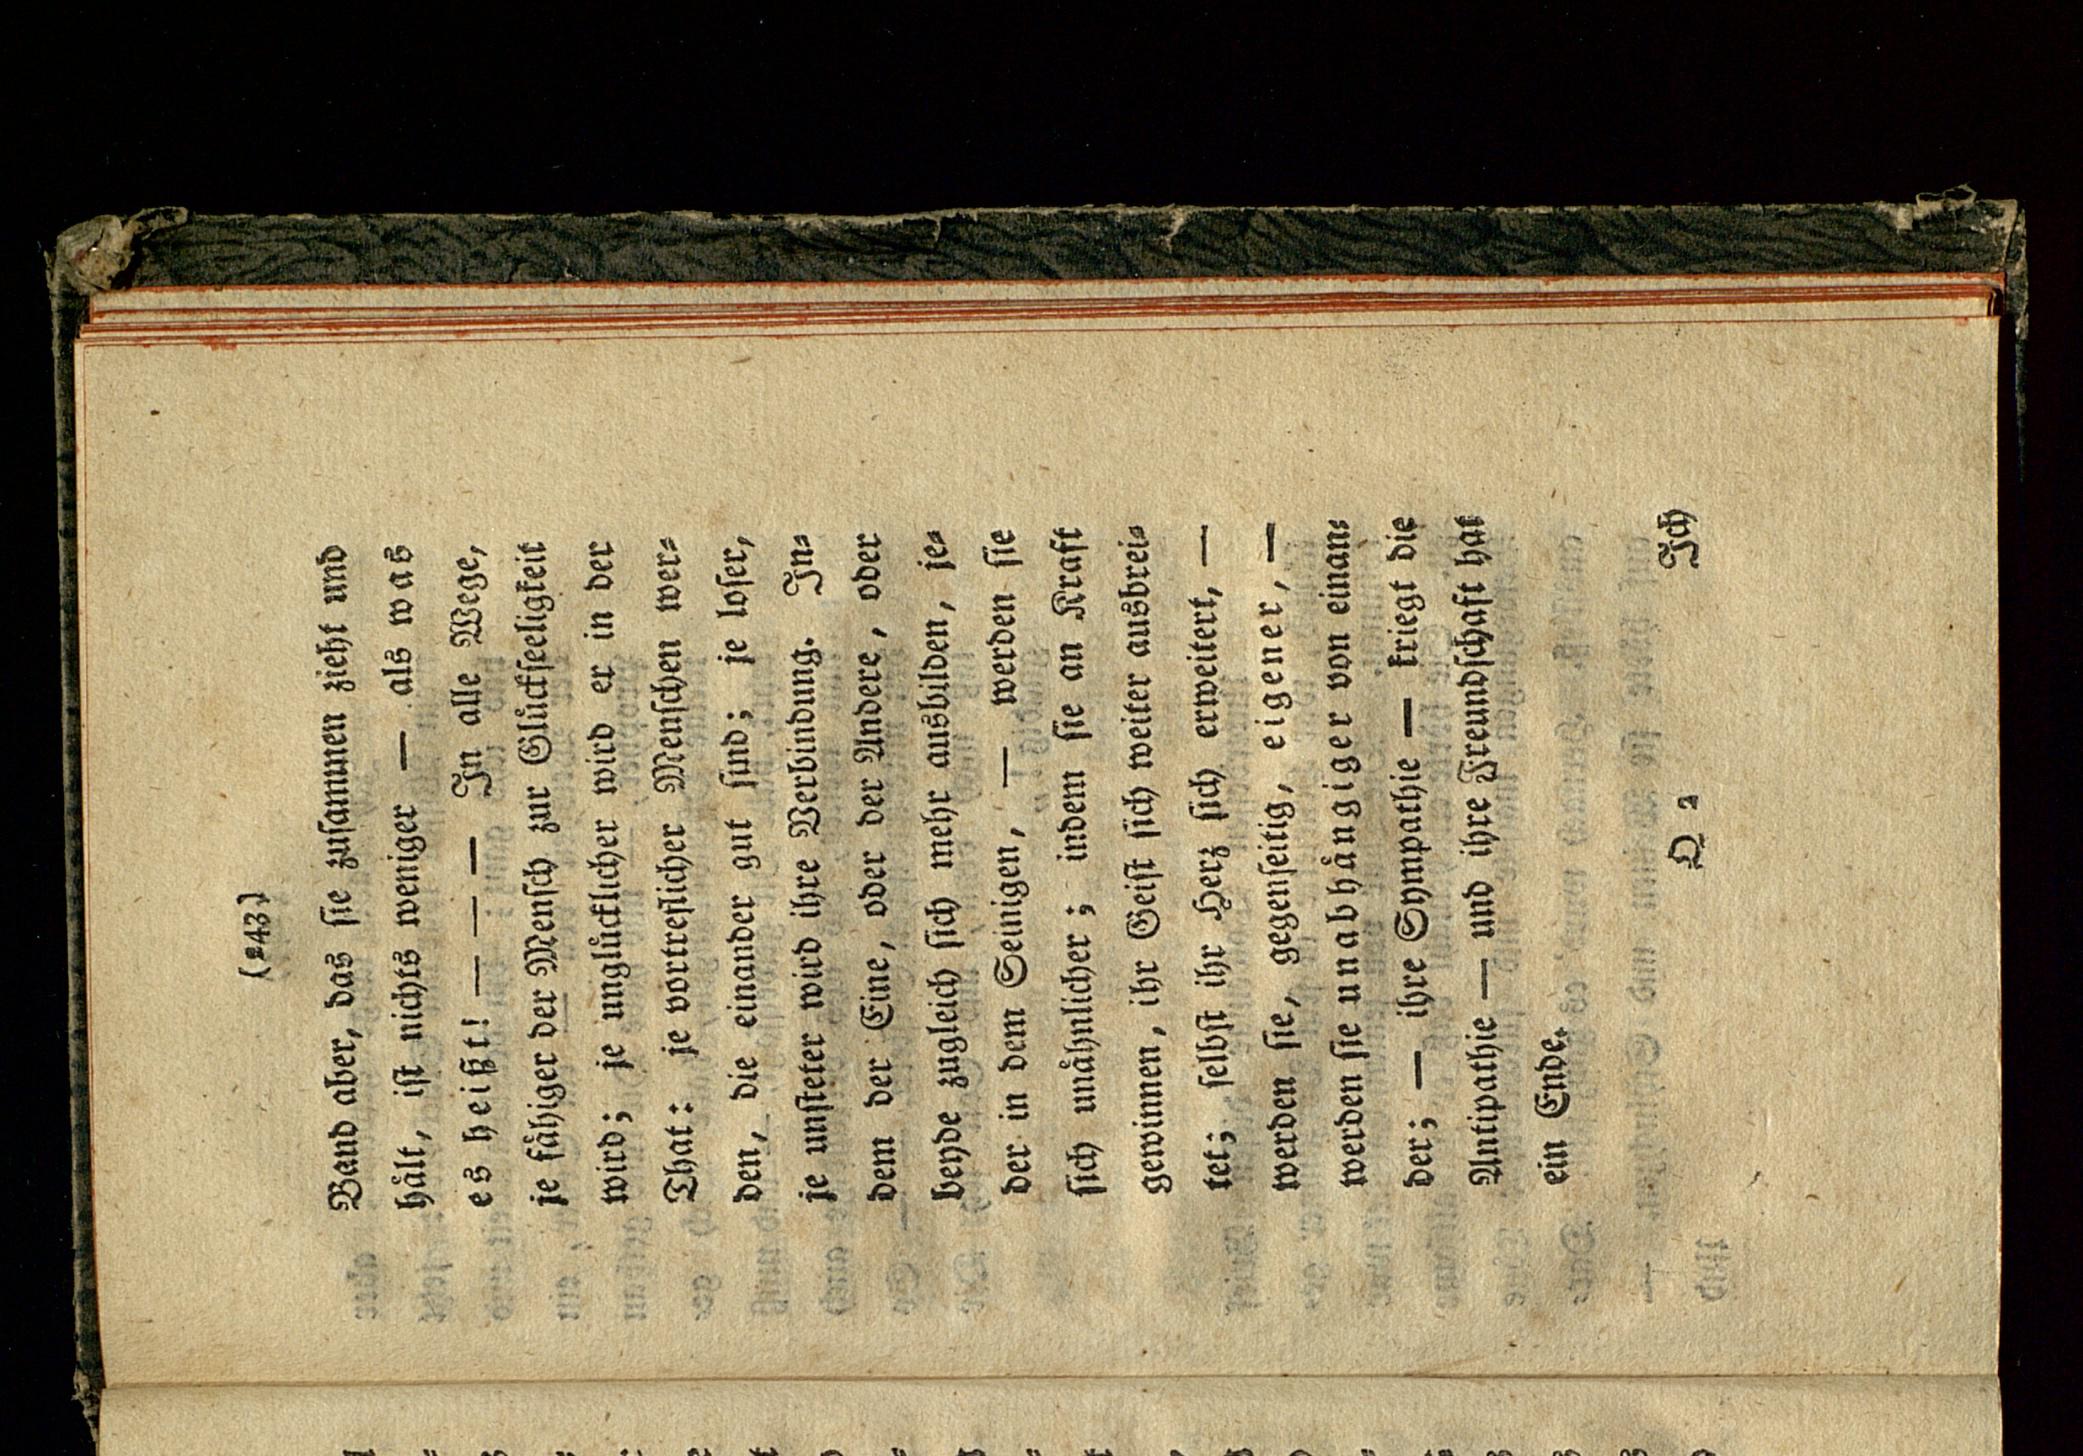 (243)
Band aber, das ſie zuſammen zieht und
hält, iſt nichts weniger — als was
es heißt! — — — In alle Wege,
je fähiger der Menſch zur Glückſeeligkeit
wird; je unglücklicher wird er in der
That: je vortreflicher Menſchen wer⸗
den, die einander gut ſind; je loſer,
je unſteter wird ihre Verbindung. In⸗
dem der Eine, oder der Andere, oder
beyde zugleich ſich mehr ausbilden, je⸗
der in dem Seinigen, — werden ſie
ſich unähnlicher; indem ſie an Kraft
gewinnen, ihr Geiſt ſich weiter ausbrei⸗
tet; ſelbſt ihr Herz ſich erweitert, —
werden ſie, gegenſeitig, eigener, —
werden ſie unabhängiger von einan⸗
der; — ihre Sympathie — kriegt die
Antipathie — und ihre Freundſchaft hat
ein Ende.
Q 2 Ich